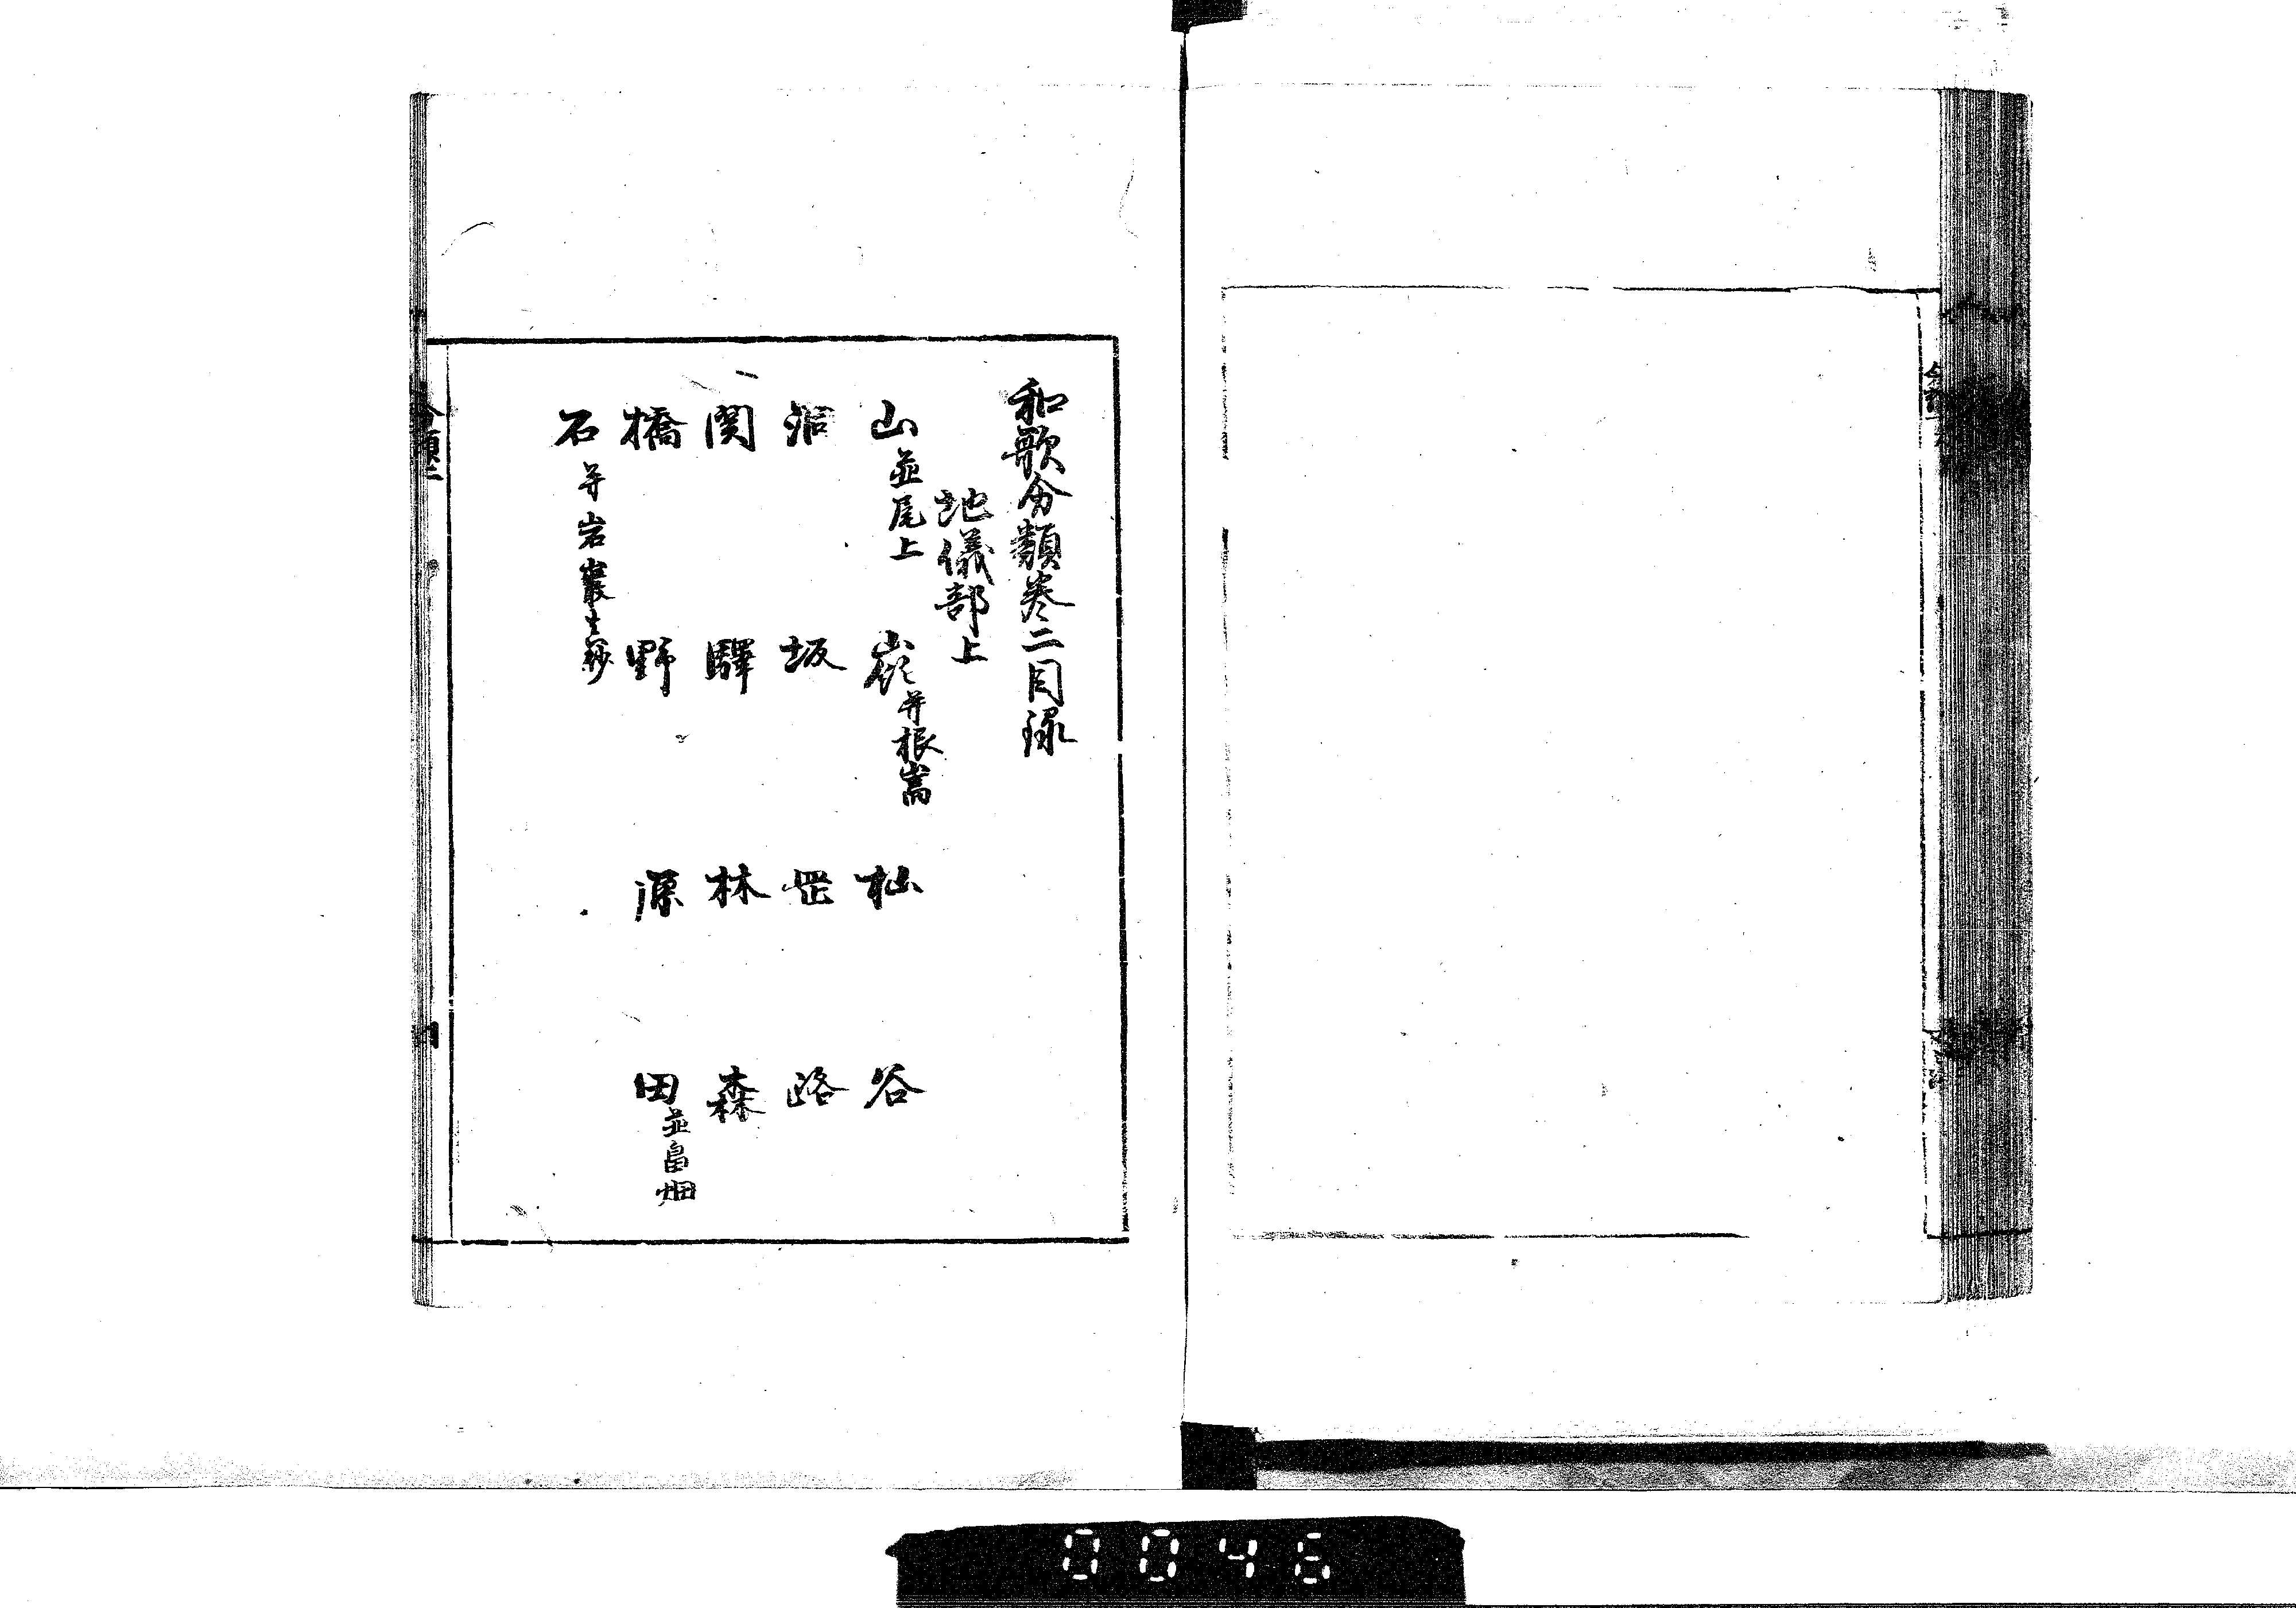 和歌分類巻二目録
地儀部上
山 並尾上
嶺 并根嵩
杣
谷
洞
坂
岡
路
関
驛
林
森
橋
野
原
田 並畠畑
石 并岩巖
分類二
0046